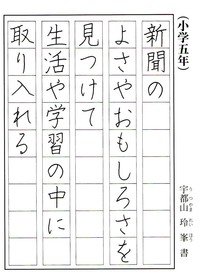 (小学五年)
新聞の
よさやおもしろさを
見つけて
生活や学習の中に
取り入れる
宇都山 玲峯 書
うつやま れいほう